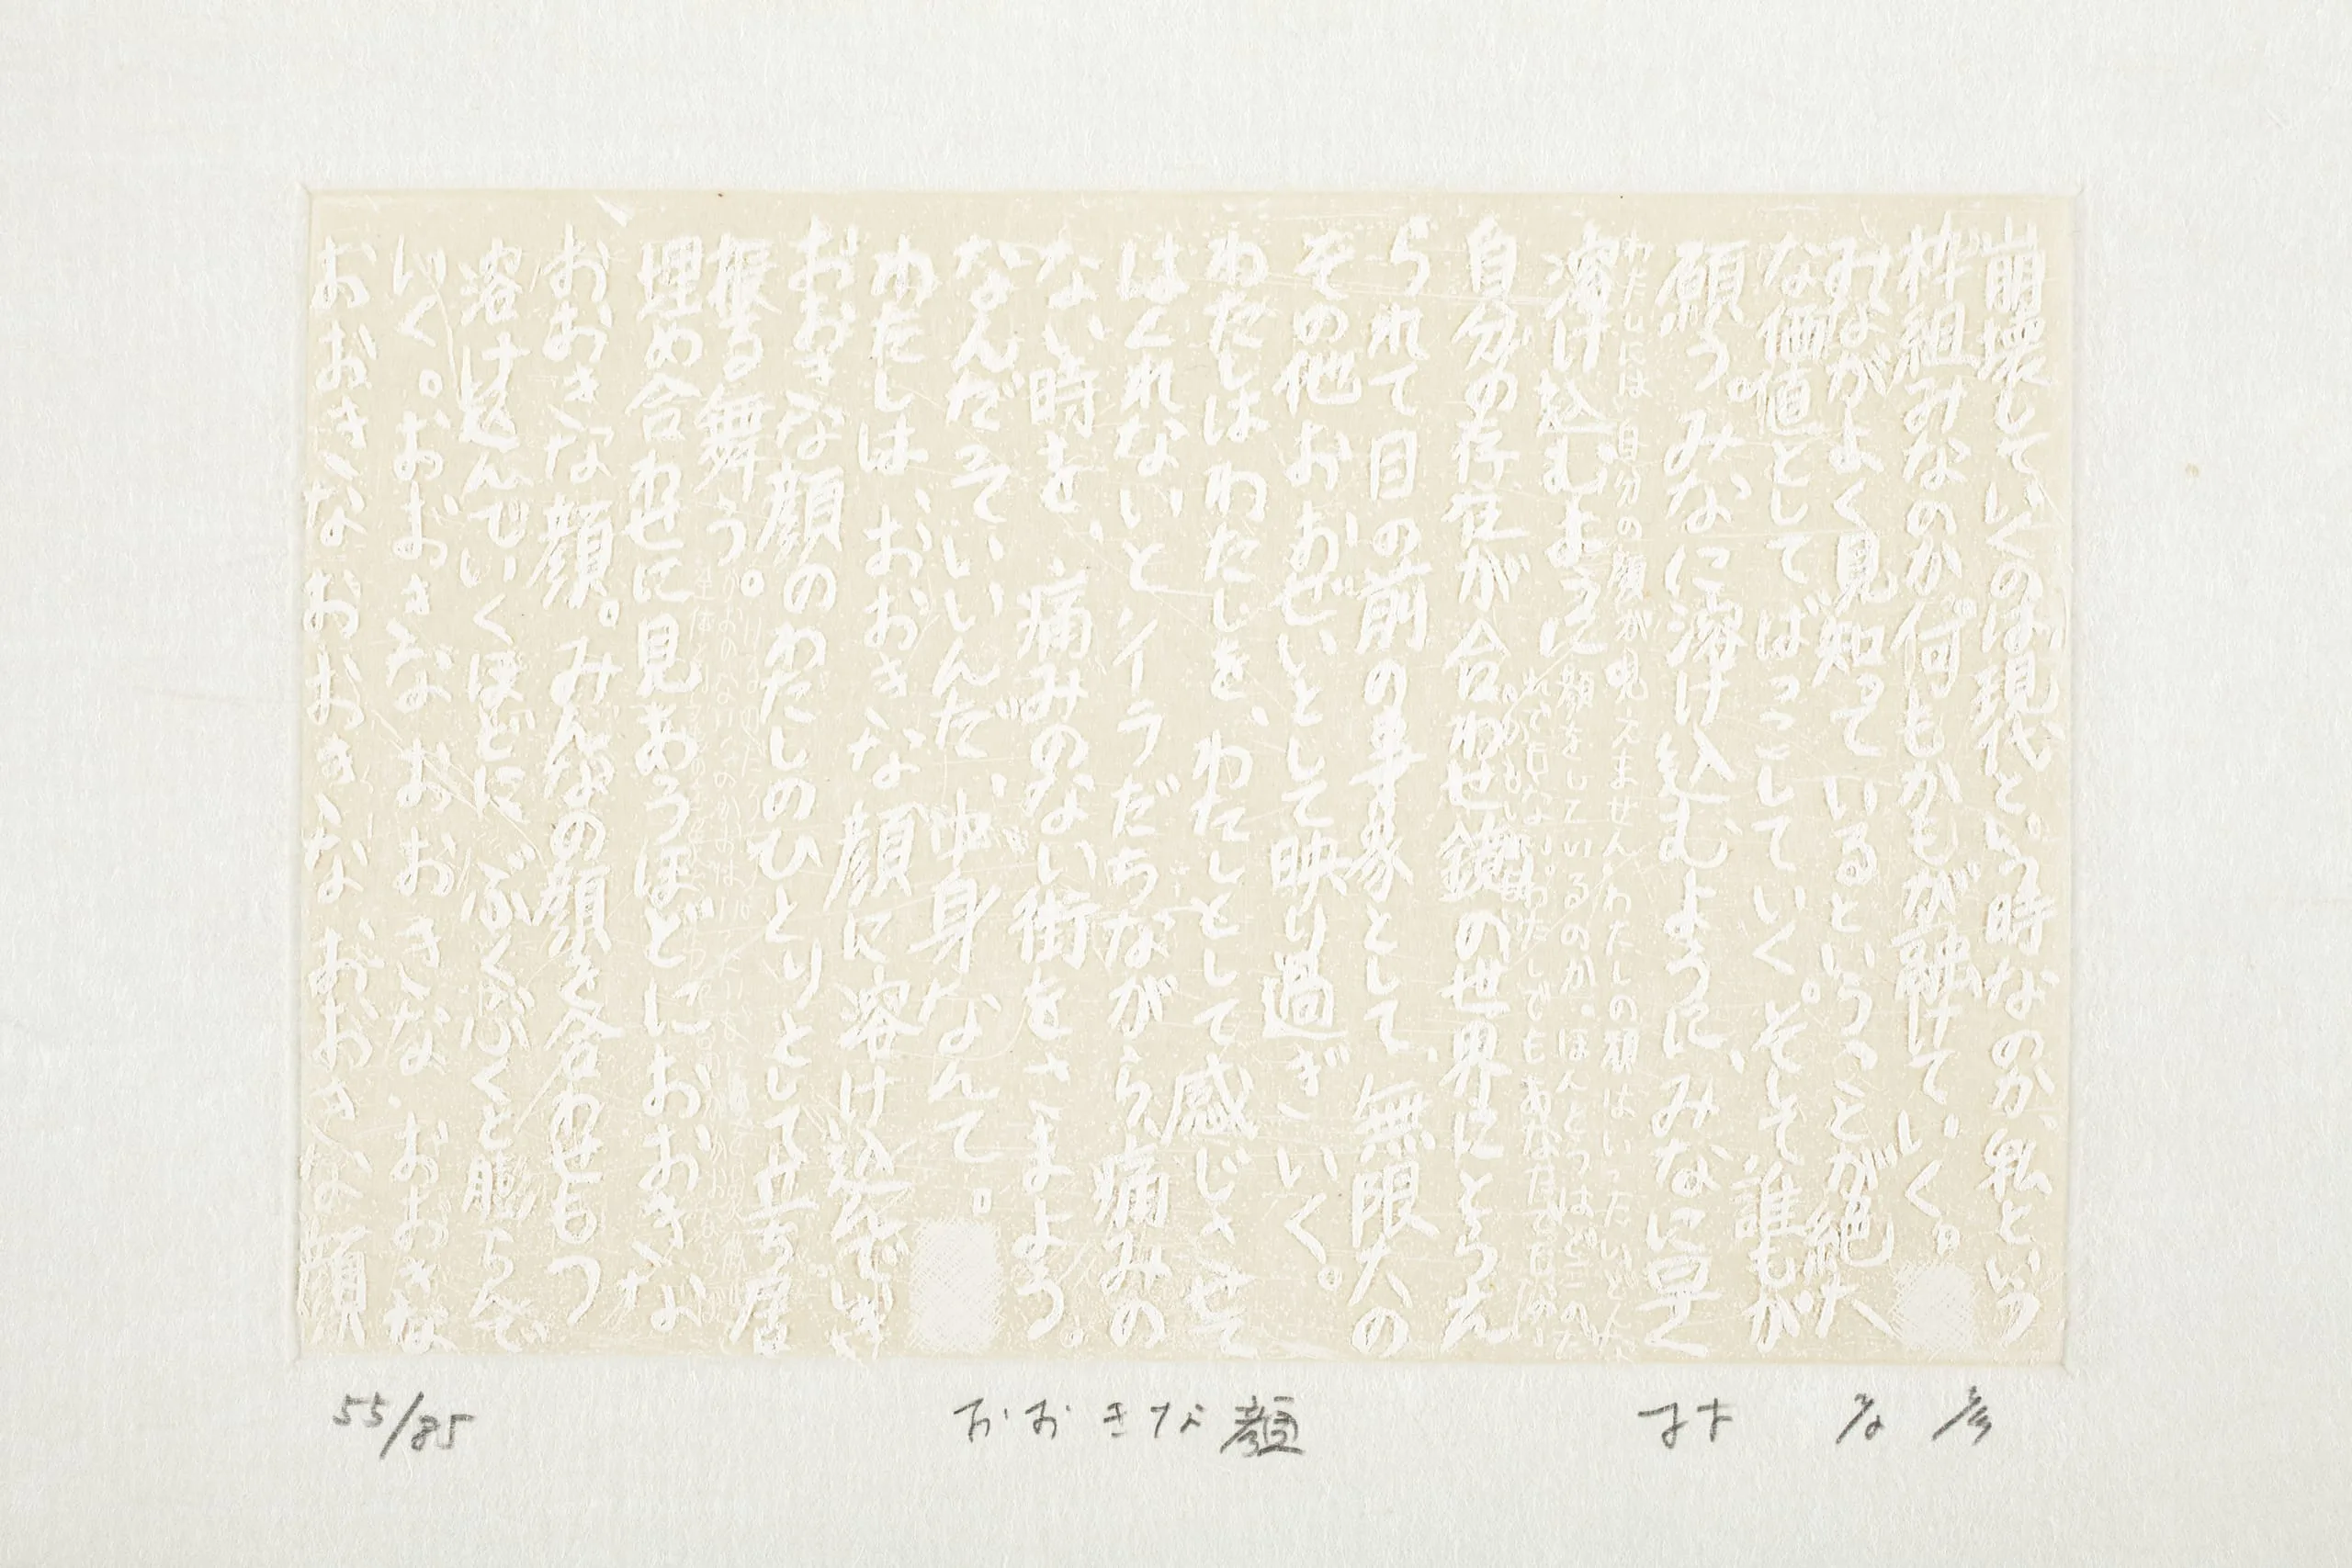 崩壊していくのは現代という時なのか、私という
枠組みなのか。何もかもが融けていく。
みながよく見知っているということが絶大
な価値としてばっこしていく。そして誰もが
願う。みなに溶け込むように、みなに早く
わたしには自分の顔が見えません。わたしの顔はいったいどんな
溶け込むように
顔をしているのか。ほんとうはどこの
わたしでもあなたでもない
自分の存在が合わせ鏡の世界にとらえ
られて目の前の事象として、無限大の
その他おおぜいとして映り過ぎていく。
わたしはわたしを、わたしとして感じさせて
はくれないとイラだちながら、痛みの
ない時を、痛みのない街をさまよう。
なんだっていいんだ、中身なんて。
わたしは、おおきな顔に溶け込んでいき
おおきな顔のわたしのひとりとして立ち居
振る舞う。
埋め合わせに見あうほどにおおきな
おおきな顔。みんなの顔を合わせもつ
溶け込んでいくほどに、ぶくぶくと膨らんで
いく。おおきなおおきな、おおきな
おおきなおおきな、おおきな顔
55/85
おおきな顔